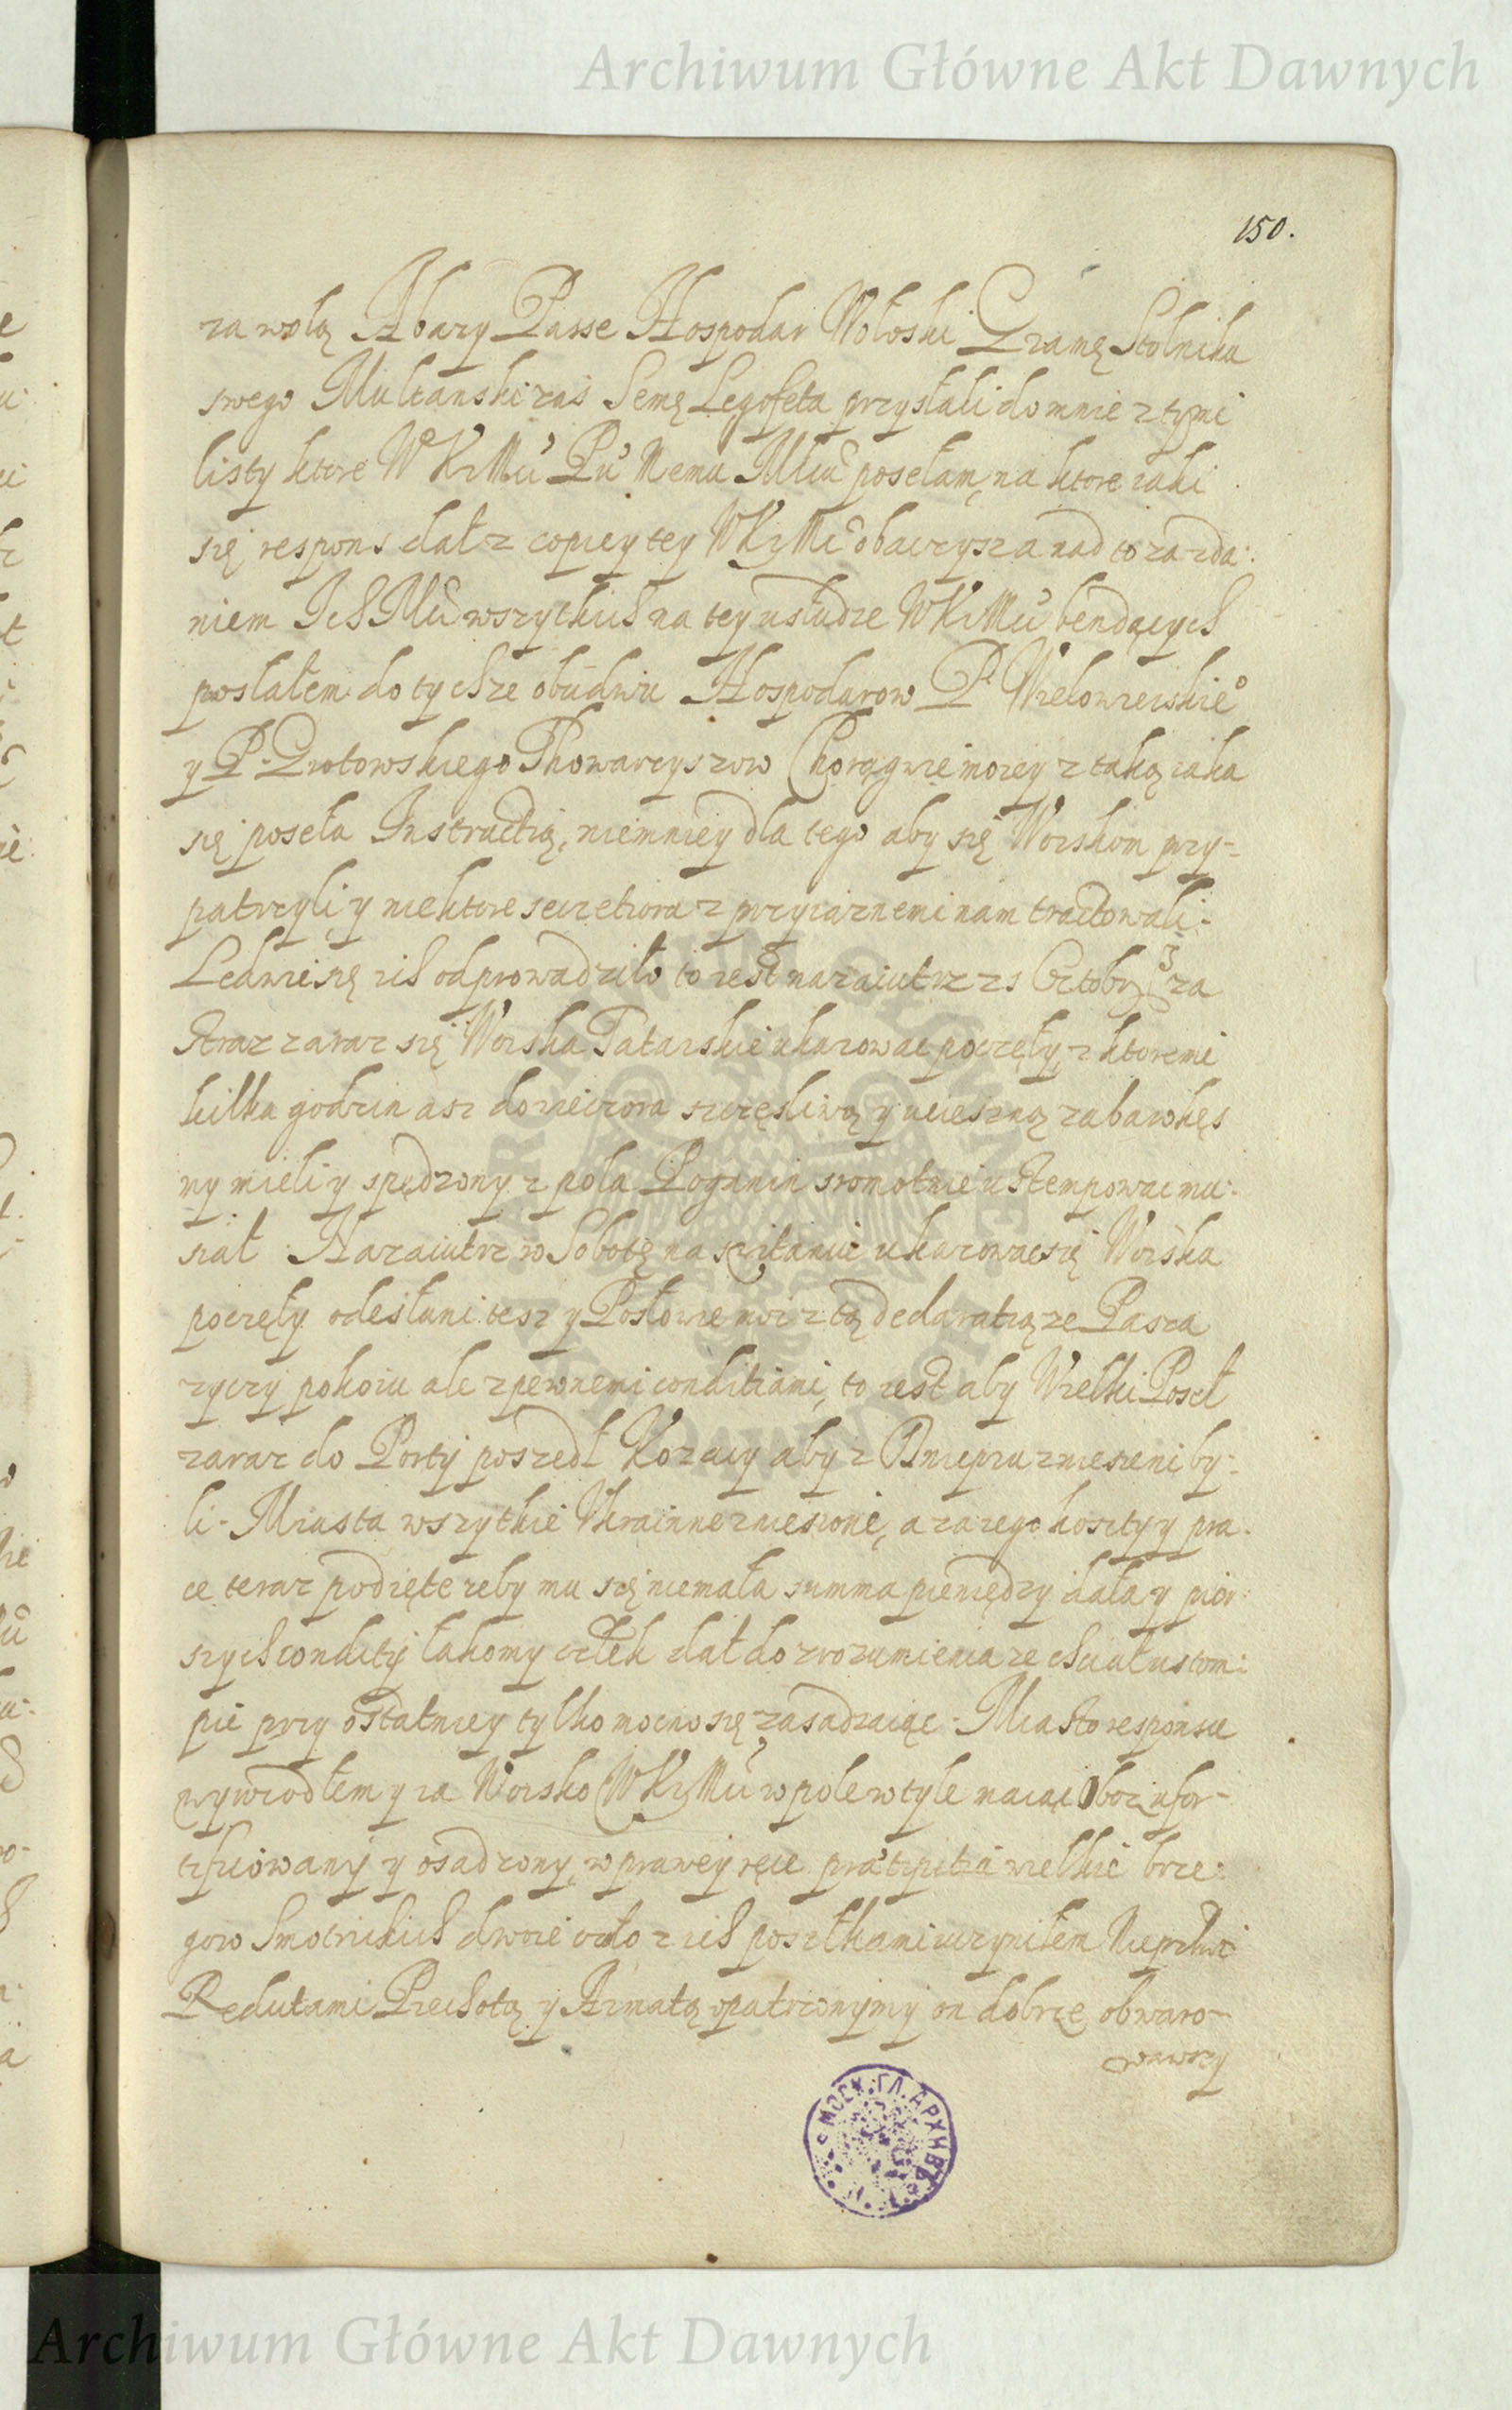 Archiwum Główne Akt Dawnych
150.
za wolą Abazy Basse Hospodar Wołoski Gramę Stolnika
swego Multanski zas Semę Legofeta przysłali do mnie z tymi
listy ktore W KrMci Pu Memu Mciu posełam, na ktore iaki
się respons dał z copiey tey WKrMc obaczysz a nad to za zda:
niem Ich Mci wszytkich na tey usłudze WKrMci bendących
posłałem do tychze obudwu Hospodarow P. Wielowieiskieo
y P. Złotowskiego Thowarzyszow Chorągwie moiey z taką iaka
się poseła Instructią, niemniey dla tego aby się Woiskom przy-
patrzyli y niektore secretiora z przyiaznemi nam tractowali.
Ledwie się ich odprowadziło to iest nazaiutrz 21 Octobr za
Straz zaraz się Woiska Tatarskie ukazowac poczęły z ktoremi
kilka godzin asz do wieczora szczęsliwą y ucieszną zabawkęs
my mieli y spędzony z pola Poganin sromotnie ustempowac mu:
siał. Nazaiutrz w Sobotę na switaniu ukazowac się Woiska
poczęły odesłani tesz y Posłowie moi z tą declaratią ze Basza
zyczy pokoiu ale z pewnemi conditiami, to iest aby Wielki Poseł
zaraz do Porty poszedł Kozacy aby z Dniepru zniesieni by-
li. Miasta wszytkie Ukrainne zniesione, a za iego koszty y pra-
ce teraz podięte zeby mu się niemała summa pieniędzy dała y pier:
szych condity łakomy człek dał do zrozumienia ze chciał ustom:
pic przy ostatniey tylko mocno się zasadzaiąc. Miasto responsu
wywiodłem y ia Woisko WKrMci w pole w tyle maiąc Oboz ufor-
tificowany y osadzony, w prawey ręce præcipitia wielkie brze:
gow Smotrickich dwoie czoło z ich posiłkami uczyniłem
Redutami Piechotą y Armatą opatrzonymy on dobrze obwaro-
wawszy
МОСК.ГЛ.АРХИВЪ
Archiwum Główne Akt Dawnych